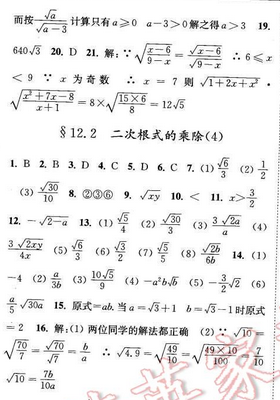 而按 √a/√(a-3) 计算只有 a⩾0 a-3>0 解之得 a>3 19.
640√3 20. D 21. 解:∵ √((x-6)/(9-x)) = √(x-6)/√(9-x) ∴ 6⩽x
<9 ∵ x 为奇数 ∴ x=7 则 √(1+2x+x²) ·
√((x²+7x-8)/(x+1)) = 8×√((15×6)/8) = 12√5
§12.2 二次根式的乘除(4)
1. B 2. B 3. D 4. C 5. D 6. C 7. (1) √6/3 (2) 1/2
(3) √30/10 8. ②③⑥ 9. √xy 10. < 11. x>3/2
12. -√(2-a) 13. (1) √5/4 (2) √30/3 (3) 3√2a/a (4)
3√2xy/4x (5) √6/3 (6) √3/2 (7) √5/5 (8) √2b/6b 14. (1)
-4 (2) a/3b (3) 10√5/9 (4) -a²b√b (5) -3/2 (6)
a/5 √30a 15. 原式=ab. 当 a=√3+1 b=√3-1时原式
=2 16. 解:(1)两位同学的解法都正确 (2)∵ √10=
√(70/7) = √70/√7 = b/a ∴ √4.9 = √(49/10) = √((49×10)/100) = 7/10
√10 = 7b/10a